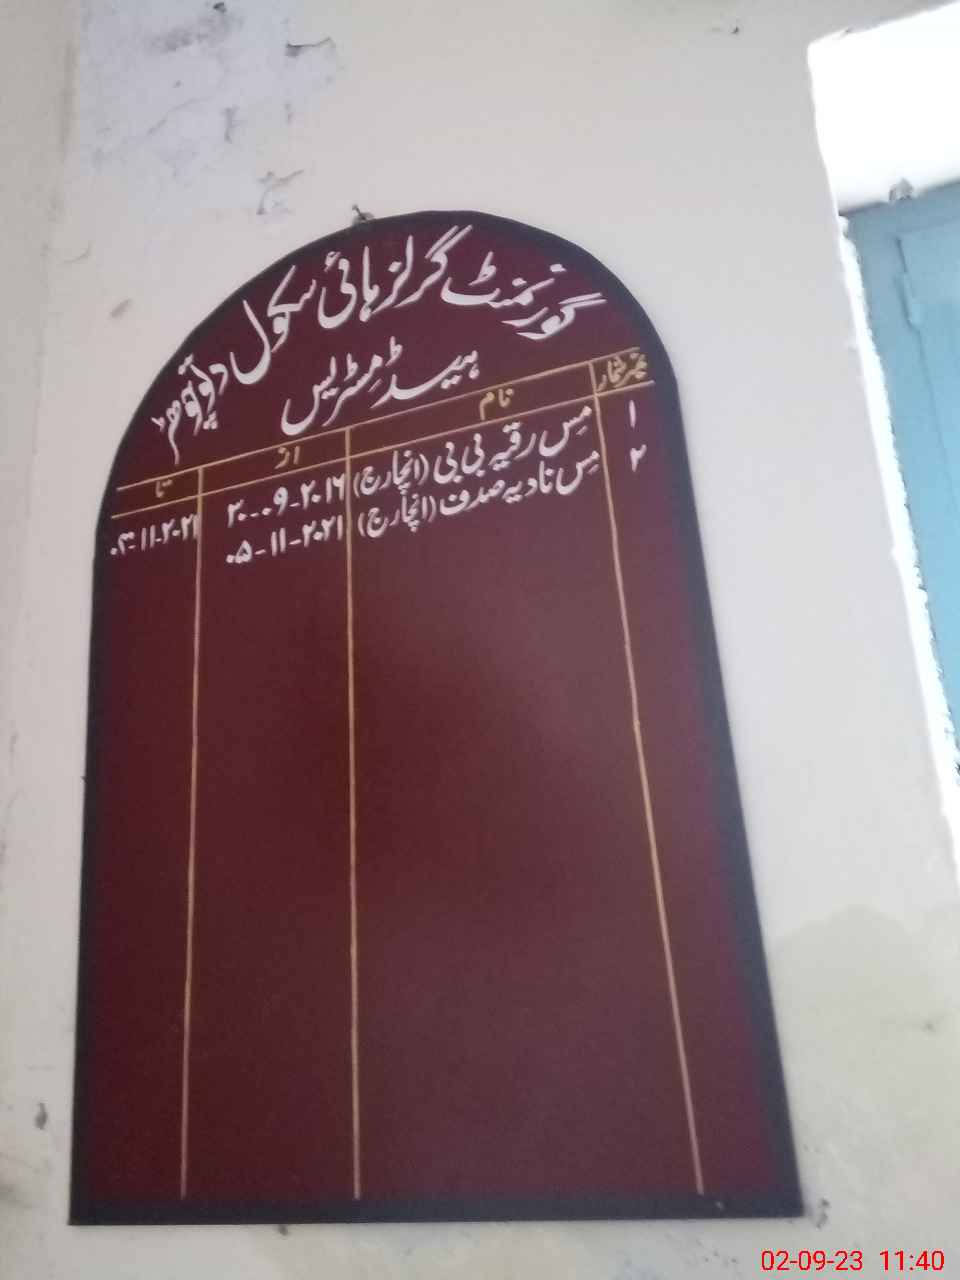 گورنمنٹ گرلز ہائی سکول
ہیڈ مسٹریس
نمبر شمار نام از تا
۱ مس رقیہ بی بی (انچارج) ۳۰-۰۹-۲۰۱۶ ۰۴-۱۱-۲۰۲۱
۲ مس نادیہ صدف (انچارج) ۰۵-۱۱-۲۰۲۱
02-09-23 11:40